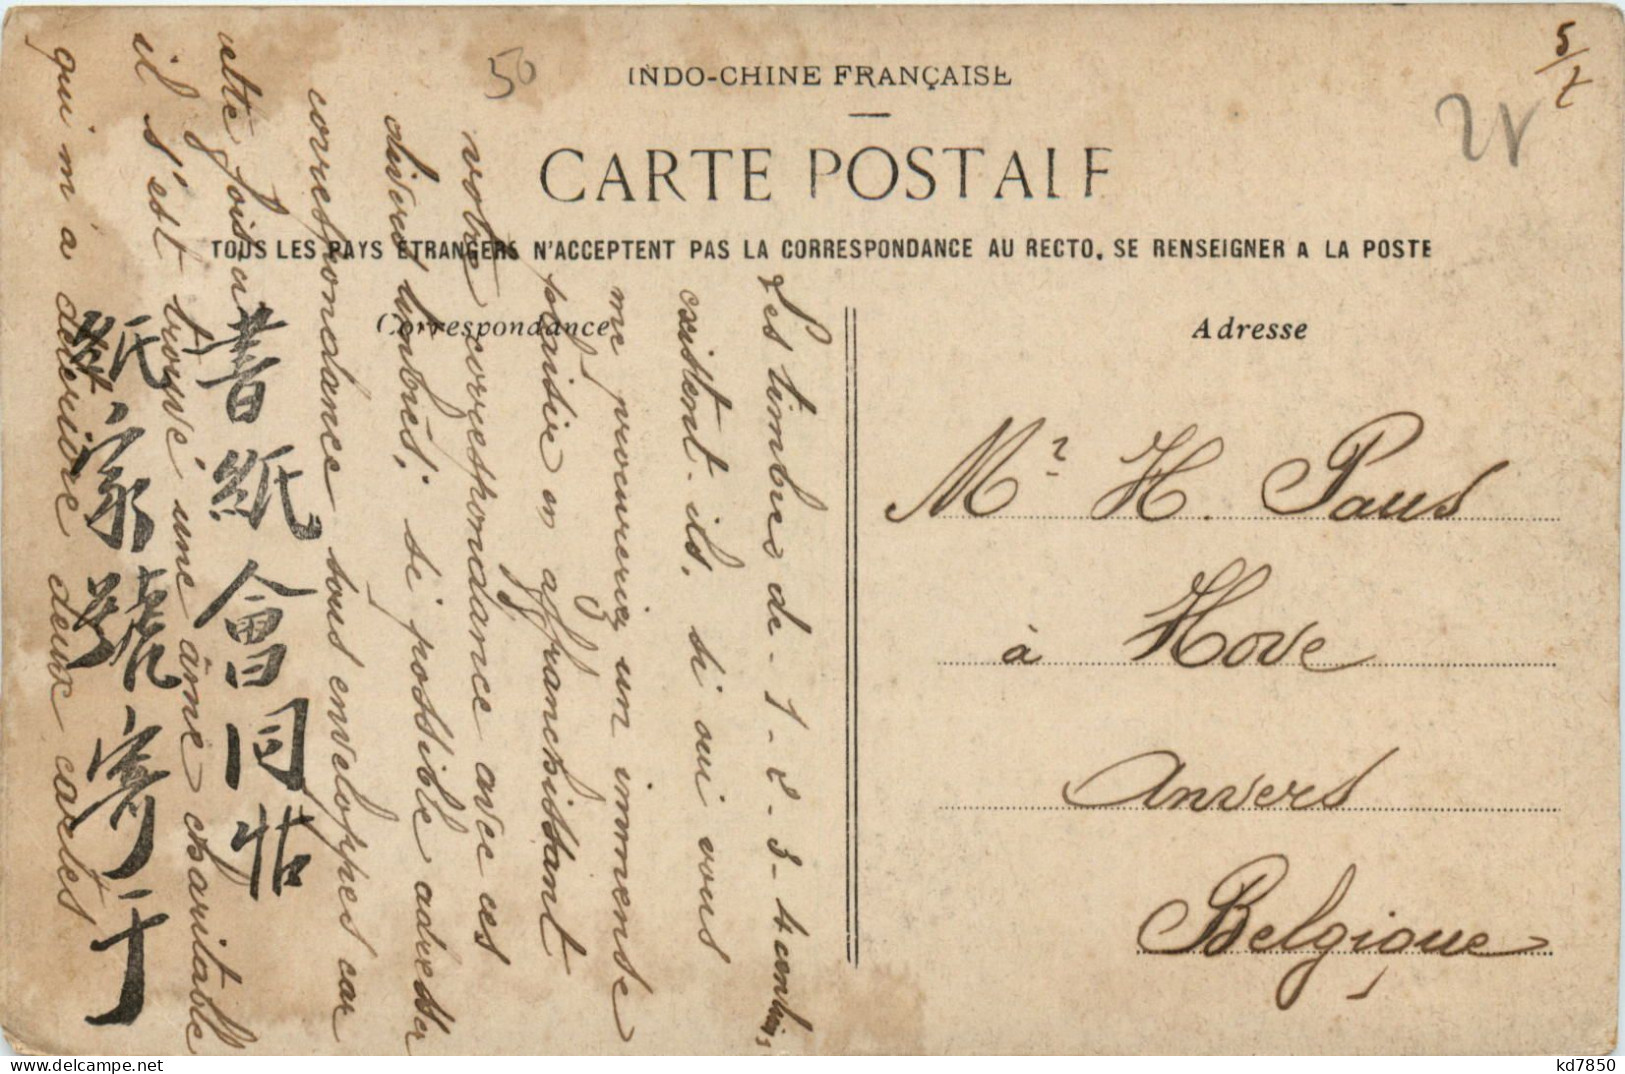 INDO-CHINE FRANÇAISE
CARTE POSTALE
TOUS LES PAYS ETRANGERS N'ACCEPTENT PAS LA CORRESPONDANCE AU RECTO, SE RENSEIGNER A LA POSTE
Correspondance
Adresse
50
Les timbres de - 1 - 2 - 3 - 4 centimes
existent-ils. si oui vous
me procureriez un immense
plaisir en affranchissant
votre correspondance avec ces
divers timbres; si possible adresser
correspondance sous enveloppes car
cette fois ci
il s'est trouvé une âme charitable
qui m'a dévérisé deux cartes
書紙會同帖
紙家號寄于
Mr H. Paus
à Hove
Anvers
Belgique
kd7850